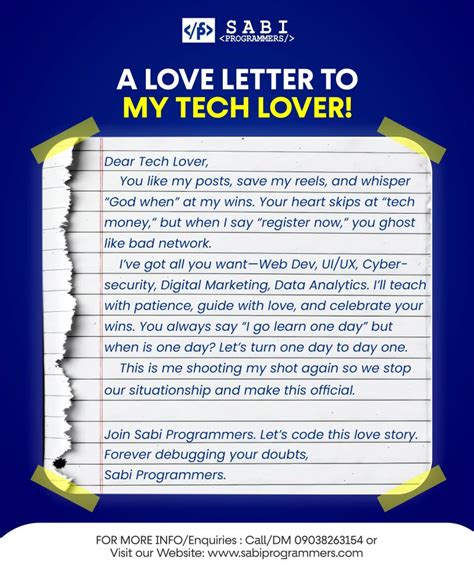 </$> SABI
<PROGRAMMERS/>
A LOVE LETTER TO
MY TECH LOVER!
Dear Tech Lover,
You like my posts, save my reels, and whisper
“God when” at my wins. Your heart skips at “tech
money,” but when I say “register now,” you ghost
like bad network.
I’ve got all you want—Web Dev, UI/UX, Cyber-
security, Digital Marketing, Data Analytics. I’ll teach
with patience, guide with love, and celebrate your
wins. You always say “I go learn one day” but
when is one day? Let’s turn one day to day one.
This is me shooting my shot again so we stop
our situationship and make this official.
Join Sabi Programmers. Let’s code this love story.
Forever debugging your doubts,
Sabi Programmers.
FOR MORE INFO/Enquiries : Call/DM 09038263154 or
Visit our Website: www.sabiprogrammers.com